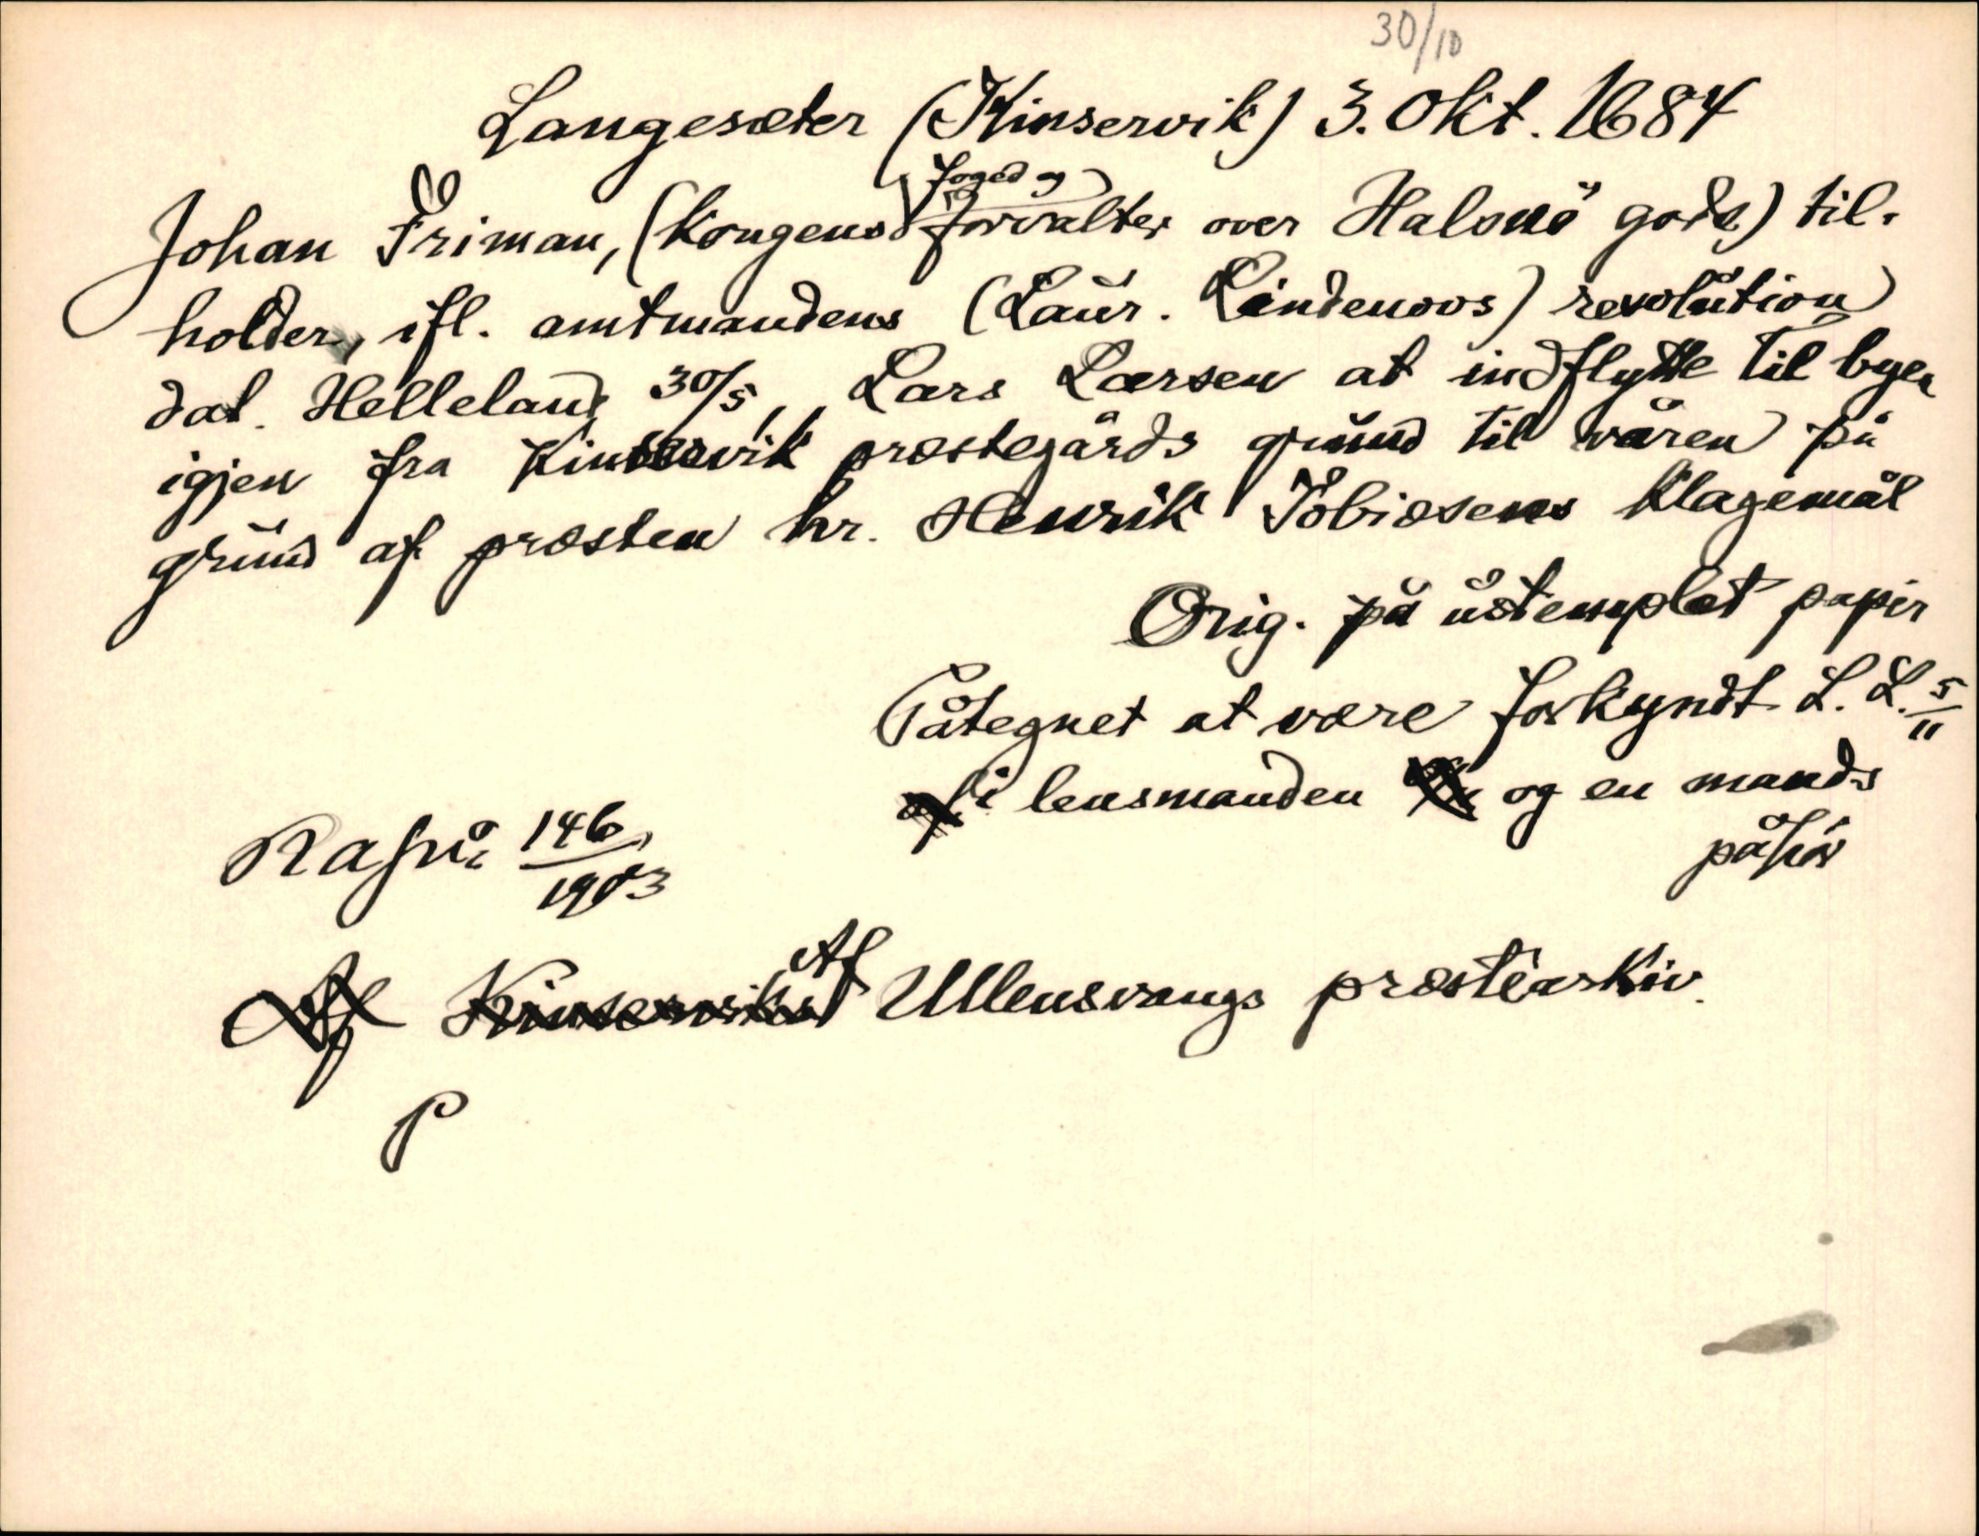 30/10
Langesæter (Kinservik) 3. Okt. 1684
foged og
Johan Friman, (kongens forvalter over Halsnö gods) til-
holder, ifl. amtmandens (Laur. Lindenovs) resolution
dat. Helleland 30/5, Lars Larsen at indflytte til byen
igjen fra Kinservik præstegårds grund til våren på
grund af præsten hr. Henrik Tobiæsens klagemål
Orig. på ustemplet papir
Påtegnet at være forkyndt L. L. 5/11
i lensmanden og en mands
påhör
Raftö 146/1903
Af Kinserviks Af Ullensvangs præstearkiv.
P